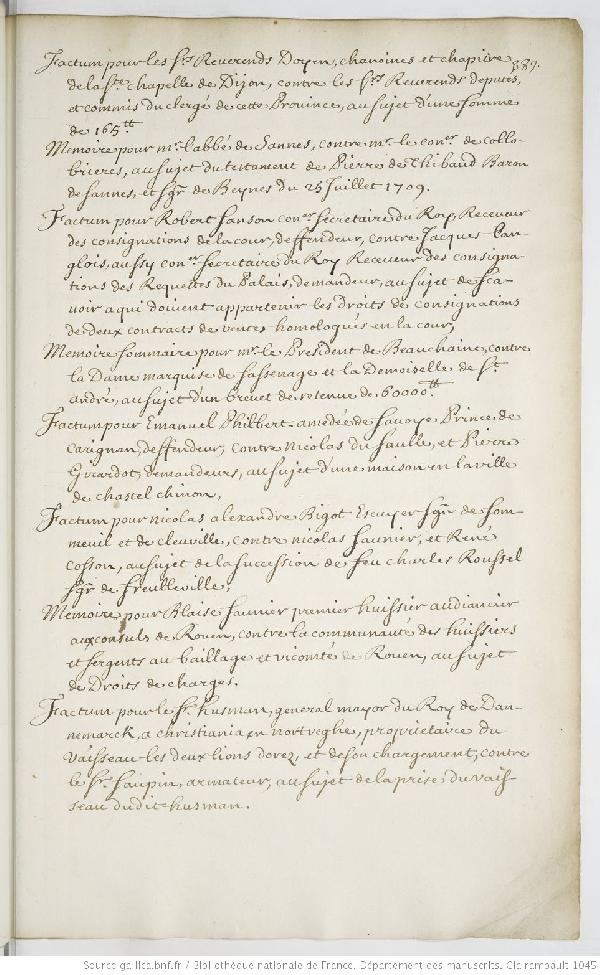 389.
Factum pour les Srs Reverends Doyen, chanoines et chapitre
de la Ste chapelle de Dijon, contre les Srs Reverends deputés,
et commis du clergé de cette Province, au sujet d'une somme
de 165tt
Memoire pour mr l'abbé de Sannes, contre mr le coner de Collo-
brieres, au sujet du testament de Pierre de Thibaud Baron
de Sannes, et Sgr de Beynes du 25 Juillet 1709.
Factum pour Robert Sanson coner Secretaire du Roy, Receveur
des consignations de la cour, deffendeur, contre Jacques Lan-
glois, aussy coner Secretaire du Roy Receveur des consigna-
tions des Requettes du Palais, demandeur, au sujet de sca-
voir a qui doivent appartenir les Droits de consignations
de deux contracts de ventes homologués en la cour,
Memoire sommaire pour mr le President de Beauchaine, contre
la Dame marquise de Sassenage et la Demoiselle de St
andré, au sujet d'un brevet de retenue de 60000tt
Factum pour Emanuel Philbert-amedée de Savoye Prince de
Carignan, deffendeur, contre Nicolas du Saulle, et Pierre
Girardot, demandeurs, au sujet d'une maison en la ville
de chastel chinon,
Factum pour nicolas alexandre Bigot Escuyer Sgr de Som-
meuil et de cleuville, contre nicolas Saunier, et René
Cosson, au sujet de la succession de feu charles Roussel
Sgr de freulleville,
Memoire pour Blaise Saunier premier huissier audiancier
aux consuls de Rouen, contre la communauté des huissiers
et sergents au baillage et vicomté de Rouen, au sujet
de Droits de charges.
Factum pour le Sr. husman, general mayor du Roy de Dan-
nemarck, a christiania en nortveghe, proprietaire du
vaisseau les deux lions dorez, et de son chargement, contre
le Sr. Saupin, armateur, au sujet de la prise du vais-
seau dudit husman.
Source gallica.bnf.fr / Bibliothèque nationale de France. Département des manuscrits. Clairambault 1045